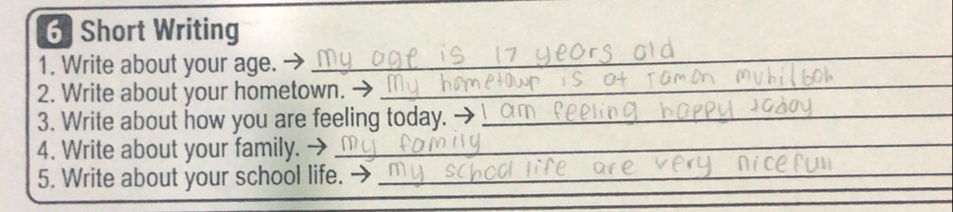 6 Short Writing
1. Write about your age. → my age is 17 years old
2. Write about your hometown. → My hometowr is at Taman muhibbah
3. Write about how you are feeling today. → I am feeling happy today
4. Write about your family. → my family
5. Write about your school life. → my school life are very nicefull